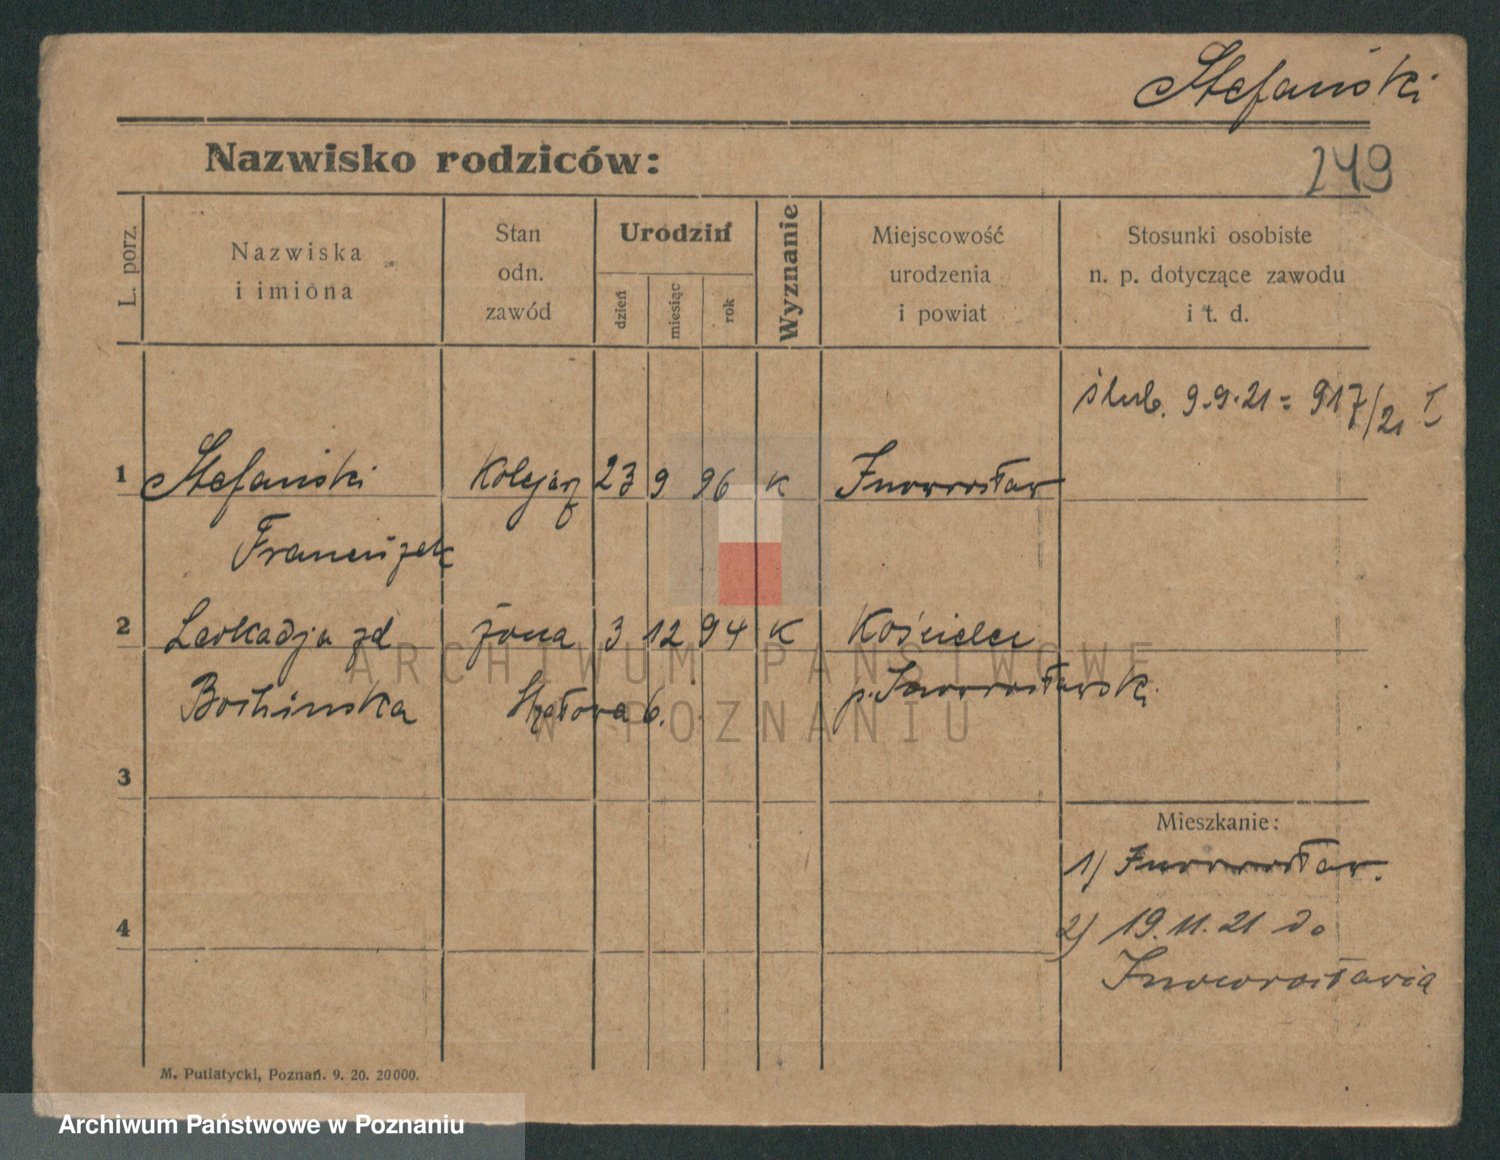 Stefański
Nazwisko rodziców:
249
L. porz.
Nazwiska
i imiona
Stan
odn.
zawód
Urodzin
dzień
miesiąc
rok
Wyznanie
Miejscowość
urodzenia
i powiat
Stosunki osobiste
n. p. dotyczące zawodu
i t. d.
ślub. 9.9.21 = 917/21 I
1 Stefański Kolejarz 23 9 96 K Inowrocław
Franciszek
2 Leokadja zd żona 3 12 94 K Kościelec
p. Inowrocławski.
6.
3
Mieszkanie:
1) Inowrocław.
4
2) 19.11.21 do
Inowrocławia
M. Putiatycki, Poznań. 9. 20. 20000.
ARCHIWUM PAŃSTWOWE
W POZNANIU
Archiwum Państwowe w Poznaniu